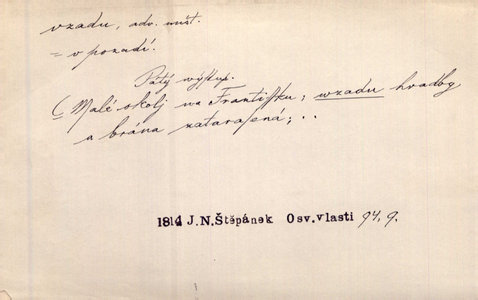 vzadu, adv. míst.
= v pozadí.
Pátý výstup.
(Malé okolj na Frantisſku; wzadu hradby
a brána zatarasená; ..
1814 J.N.Štěpánek Osv.vlasti 94, 9.